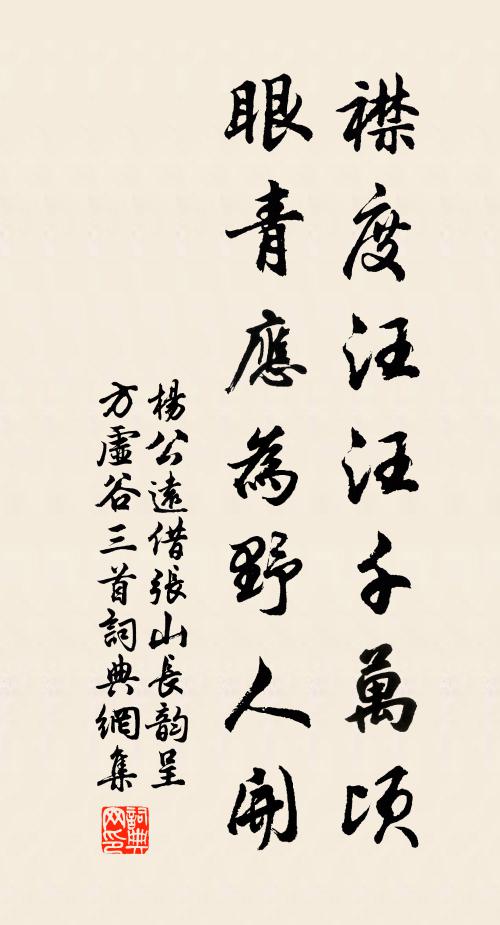 襟度汪汪千萬頃
眼青應為野人開
楊公遠借張山長韵呈
方虛谷三首詞典網集
詞典網印